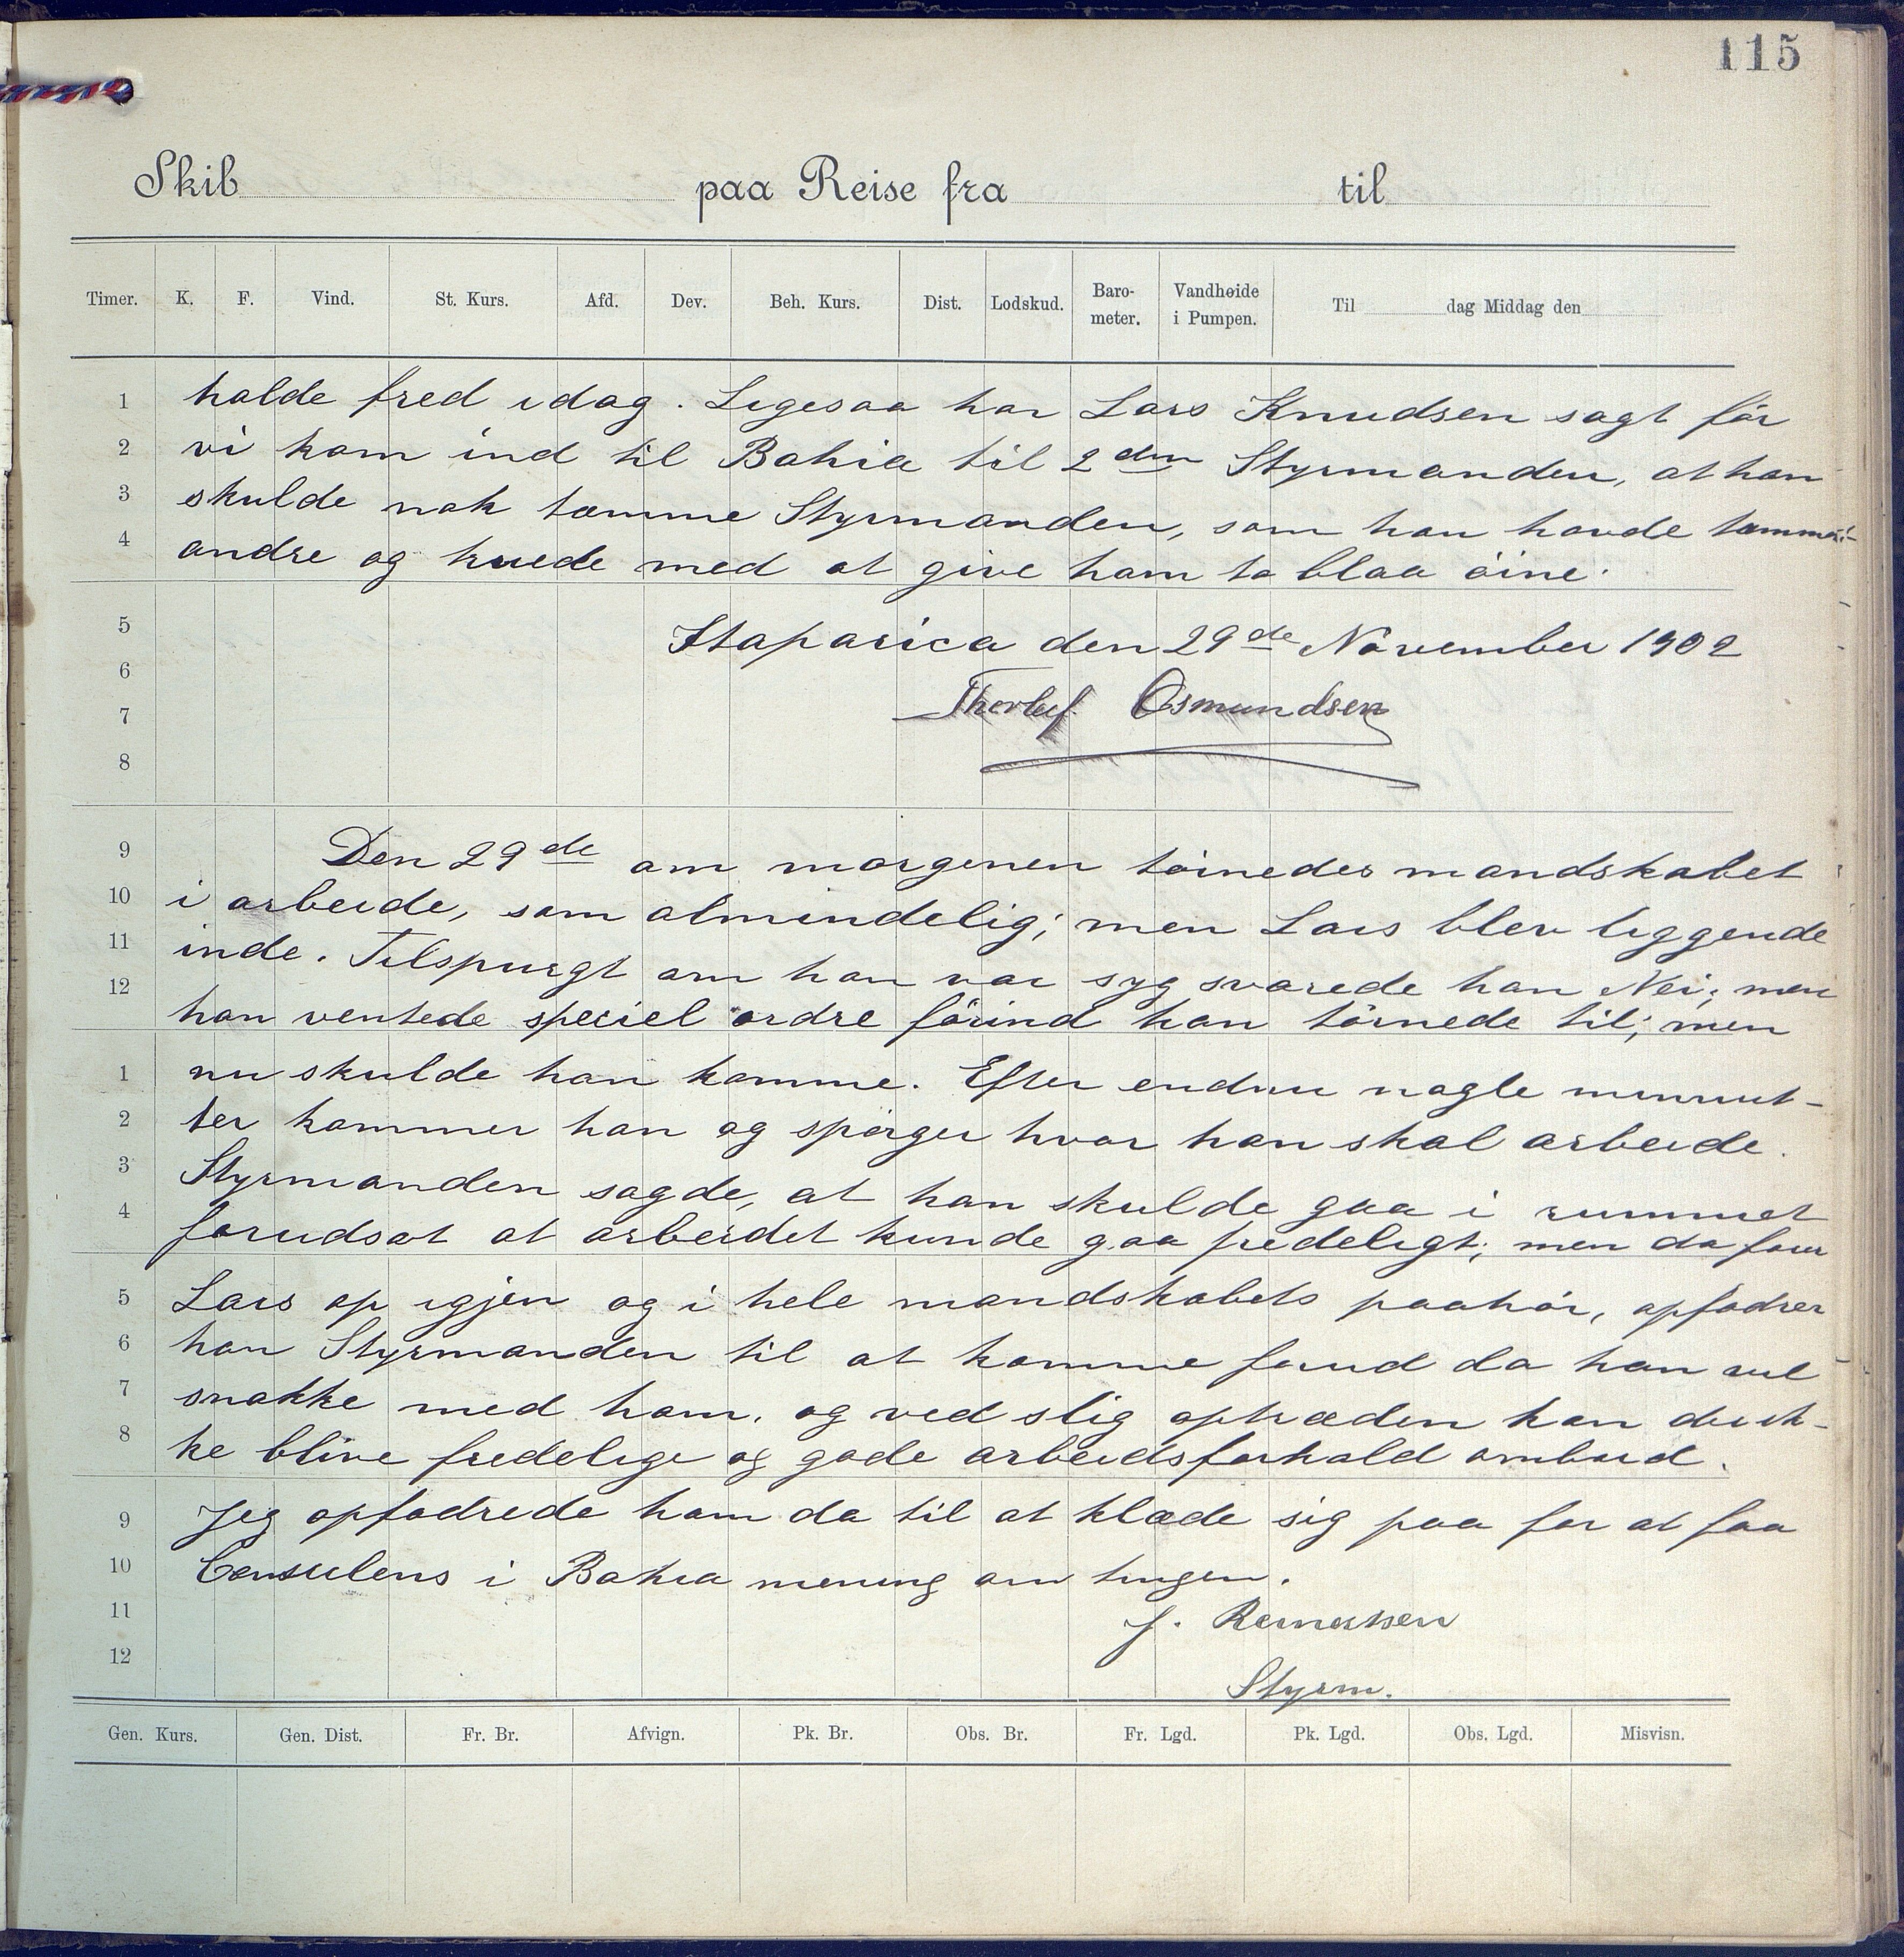 115
Skib paa Reise fra til
Timer. K. F. Vind. St. Kurs. Afd. Dev. Beh. Kurs. Dist. Lodskud. Baro-meter. Vandhøide i Pumpen. Til dag Middag den
1 holde fred idag. Ligesaa har Lars Knudsen sagt för
2 vi kom ind til Bahia til 2den Styrmanden, at han
3 skulde nok tæmme Styrmanden, som han havde tæmmet
4 andre og truede med at give ham to blaa öine.
5 Itaparica den 29de November 1902
6
7 Thorleif Osmundsen
8
9 Den 29de om morgenen törnedes mandskabet
10 i arbeide, som almindelig; men Lars blev liggende
11 inde. Tilspurgt om han var syg svarede han Nei; men
12 han ventede speciel ordre förind han törnede til; men
1 nu skulde han komme. Efter endnu nogle minnut-
2 ter kommer han og spörger hvor han skal arbeide.
3 Styrmanden sagde, at han skulde gaa i rummet
4 forudsat at arbeidet kunde gaa fredeligt; men da foer
5 Lars op igjen og i hele mandskabets paahör, opfodrer
6 han Styrmanden til at komme forud da han vil
7 snakke med ham. og ved slig optræden kan der ik-
8 ke blive fredelige og gode arbeidsforhold ombord.
9 Jeg opfodrede ham da til at klæde sig paa for at faa
10 Consulens i Bahia mening om tingen.
11 J.
12 Styrm.
Gen. Kurs. Gen. Dist. Fr. Br. Afvign. Pk. Br. Obs. Br. Fr. Lgd. Pk. Lgd. Obs. Lgd. Misvisn.